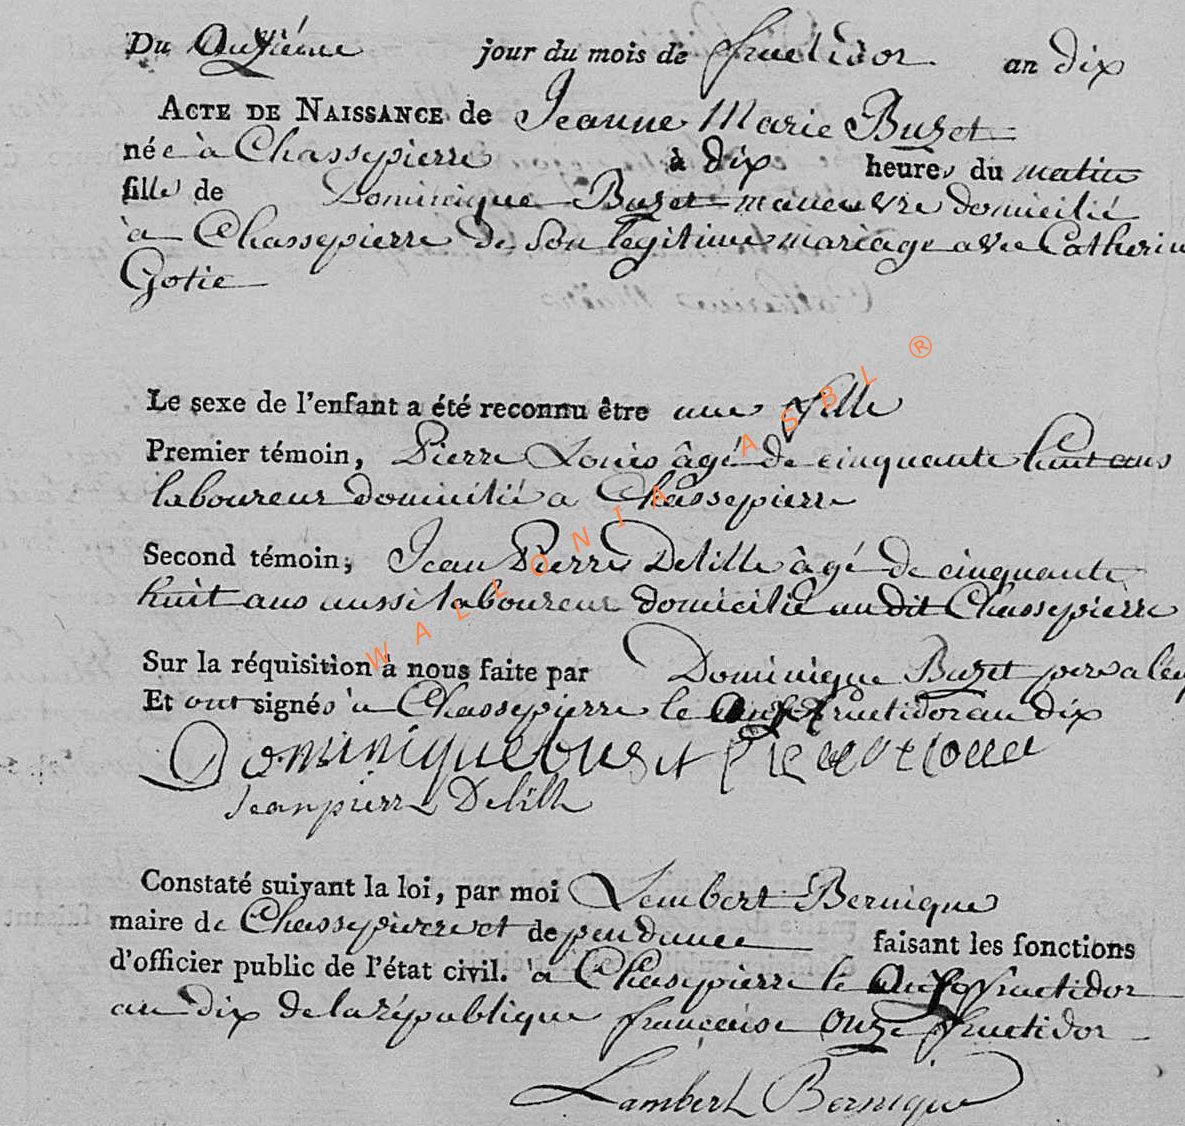 Du Onzième jour du mois de fructidor an dix
ACTE DE NAISSANCE de Jeanne Marie Buzet
née à Chassepierre à dix heures du matin
fille de Dominique Buzet maneuvre domicilié
à Chassepierre de Son legitime mariage avec Catherin
Gotie
Le sexe de l'enfant a été reconnu être une fille
Premier témoin, Pierre Louis âgé de cinquante huit ans
laboureur domicilié a Chassepierre
Second témoin, Jean Pierre Delille âgé de cinquante
huit ans aussi laboureur domicilié au dit Chassepierre
Sur la réquisition à nous faite par Dominique Buzet pere
Et ont signés à Chassepierre le onze fructidor an dix
Dominique buset
Jean pierre Delille
Constaté suivant la loi, par moi Lambert Bernique
maire de Chassepierre et dependance faisant les fonctions
d'officier public de l'état civil. à Chassepierre le onze fructidor
an dix de la république francaise onze fructidor
Lambert Bernique
WALLONIA ASBL ®